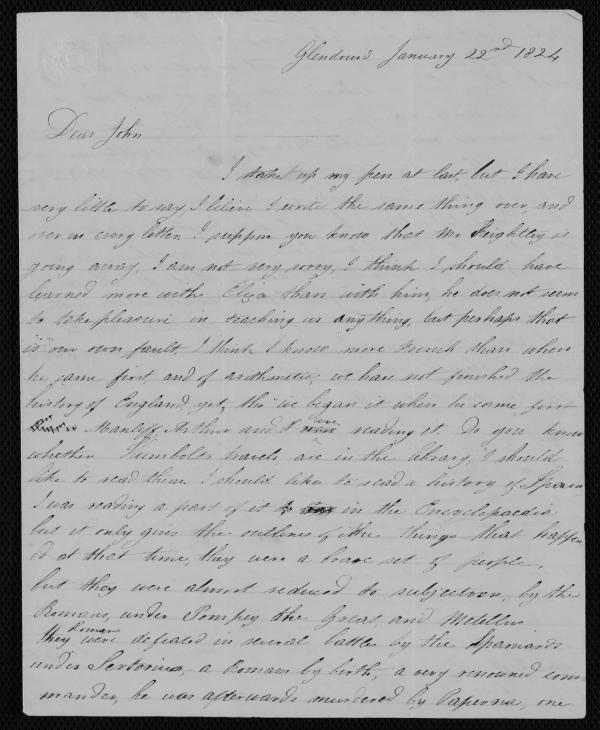 Glendruid January 22nd 1824
Dear John
I take up my pen at last but I have
very little to say, I beleive I write the same thing over, and
over in every letter. I suppose you know that Mr Keightley is
going away, I am not very sorry, I think I should have
learned more with Eliza than with him, he does not seem
to take pleasure in teaching us anything, but perhaps that
is our own fault, I think I know more French than when
he came first, and of arithmetic, we have not finished the
history of England, yet, tho' we began it when he came first
Arthur and I were reading it. Do you know
whether Humbolds travels, are in the library, I should
like to read them. I should like to read a history of Spain
I was reading a part of it in the Encyclopaedia
but it only gives the outlines of the things that happen
ed at that time, they were a brave set of people,
but they were almost reduced to subjection, by the
Romans, under Pompey the Great, and Metellus
they Romans were defeated in several battles by the Spaniards
under Sertorius, a Roman by birth, a very renowned com-
mander, he was afterwards murdered by Paperna, one